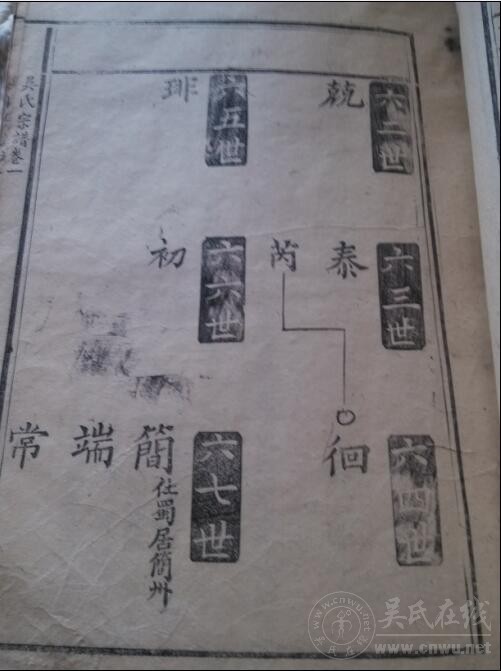 六二世
兢
六三世
泰
芮
六四世
徊
六五世
琲
六六世
初
六七世
簡
仕蜀居簡州
端
常
吳氏宗譜卷一
吴氏在线
www.cnwu.net